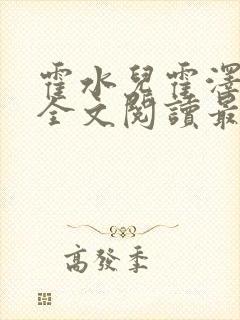 霍水兒霍澤
全文閱讀最
高發季